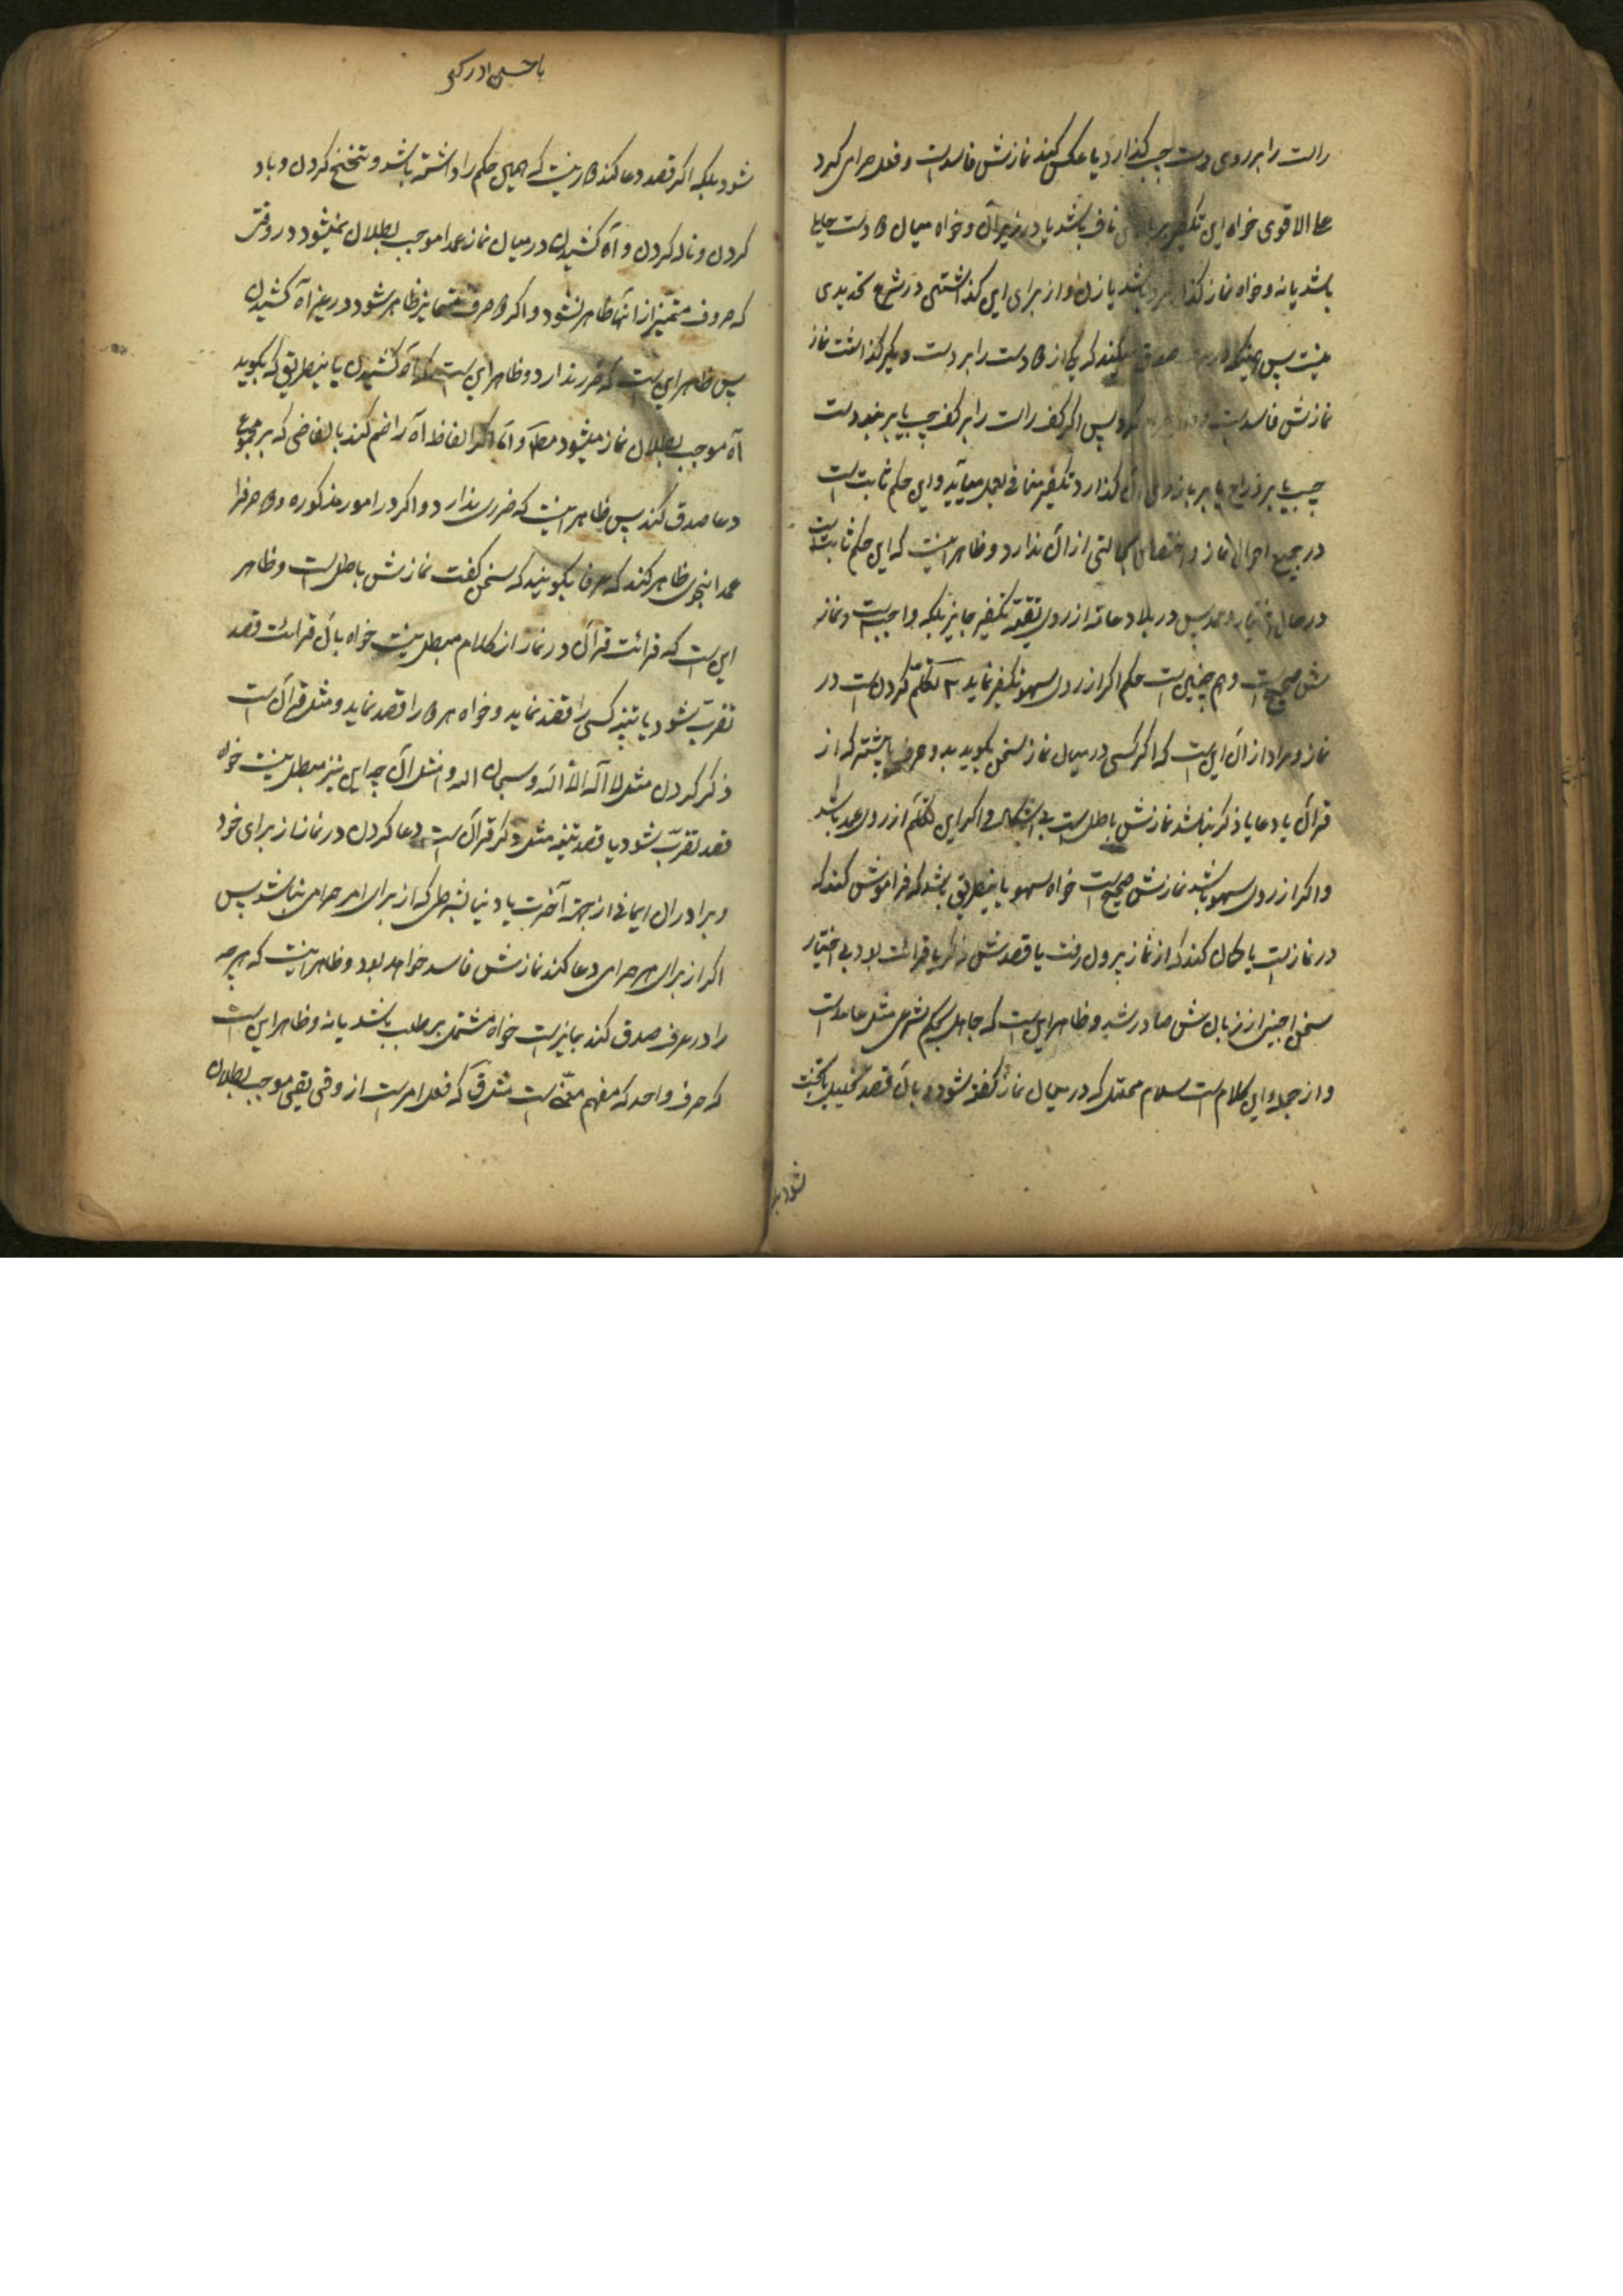 راست را بر روی دست چپ گذارد یا عکس کند نمازش فاسد است و فعل حرامی کرده
علی الاقوی خواه این تکفیر بر بالای ناف باشد یا در زیر آن و خواه میان دو دست حایل
باشد یا نه و خواه نماز گذار مرد باشد یا زن و از برای این گذاشتن در شرع تحدیدی
نیست پس همینکه در عرف صدق میکند که یکی از دو دست را بر دست دیگر گذاشت نماز
نمازش فاسد است پس اگر کف راست را بر کف چپ یا بر بند دست
چپ یا بر ذراع یا بر بازوی آن گذارد تکفیر منافی بعمل میآید و این حکم ثابت است
در جمیع احوال نماز و اختصاص بحالتی از آن ندارد و ظاهر اینست که این حکم ثابت است
در حال اختیار و عمد پس در بلاد عامه از روی تقیّه تکفیر جایز بلکه واجب است و نماز
ش صحیح است و هم چنین است حکم اگر از روی سهو تکفیر نماید ۳ تکلّم کردن است در
نماز و مراد از آن این است که اگر کسی در میان نماز سخن بگوید بدو حرف یا بیشتر که از
قرآن یا دعا یا ذکر نباشد نمازش باطل است بی اشکال و اگر این تکلّم از روی عمد باشد
و اگر از روی سهو باشد نمازش صحیح است خواه سهو باینطریق باشد که فراموش کند که
در نماز است یا گمان کند که از نماز بیرون رفت یا قصدش ذکر یا قرائت بود بی اختیار
سخن اجنبی از زبانش صادر شد و ظاهر این است که جاهل بحکم شرعی مثل عامد است
و از جمله این کلام است سلام محلّل که در میان نماز گفته شود و بآن قصد تحلیل یا تحیّت
نشود بلکه
یا حسین ادرکنی
شود بلکه اگر قصد دعا کند دور نیست که همین حکم را داشته باشد و تنحنح کردن و باد
کردن و ناله کردن و آه کشیدن در میان نماز عمدا موجب بطلان نمیشود در وقتی
که حروف متمیّز از آنها ظاهر نشود و اگر دو حرف متمایز ظاهر شود در غیر آه کشیدن
پس ظاهر این است که ضرر ندارد و ظاهر این است که آه کشیدن باینطریق که بگوید
آه موجب بطلان نماز میشود مطلقا و امّا اگر الفاظ آه را ضم کند بالفاظی که بر مجموع
دعا صدق کند پس ظاهر اینست که ضرری ندارد و اگر در امور مذکوره دو حرف را
عمدا بنحوی ظاهر کند که عرفا بگویند که سخن گفت نمازش باطل است و ظاهر
این است که قرائت قرآن در نماز از کلام مبطل نیست خواه بآن قرائت قصد
تقرّب شود یا تنبیه کسی را قصد نماید و خواه هر دو را قصد نماید و مثل قرآن است
ذکر کردن مثل لا اله الا الله و سبحان الله و امثال آن چه این نیز مبطل نیست خواه
قصد تقرّب شود یا قصد تنبیه مثل ذکر قرآن است دعا کردن در نماز از برای خود
و برادران ایمانی از جهة آخرت یا دنیا بشرطی که از برای امر حرامی نباشد پس
اگر از برای امر حرامی دعا کند نمازش فاسد خواهد بود و ظاهر اینست که هرچه
را در عرف صدق کند جایز است خواه مشتمل بر طلب باشد یا نه و ظاهر این است
که حرف واحد که مفهم معنی است مثل ق که فعل امر است از وقی یقی موجب بطلان